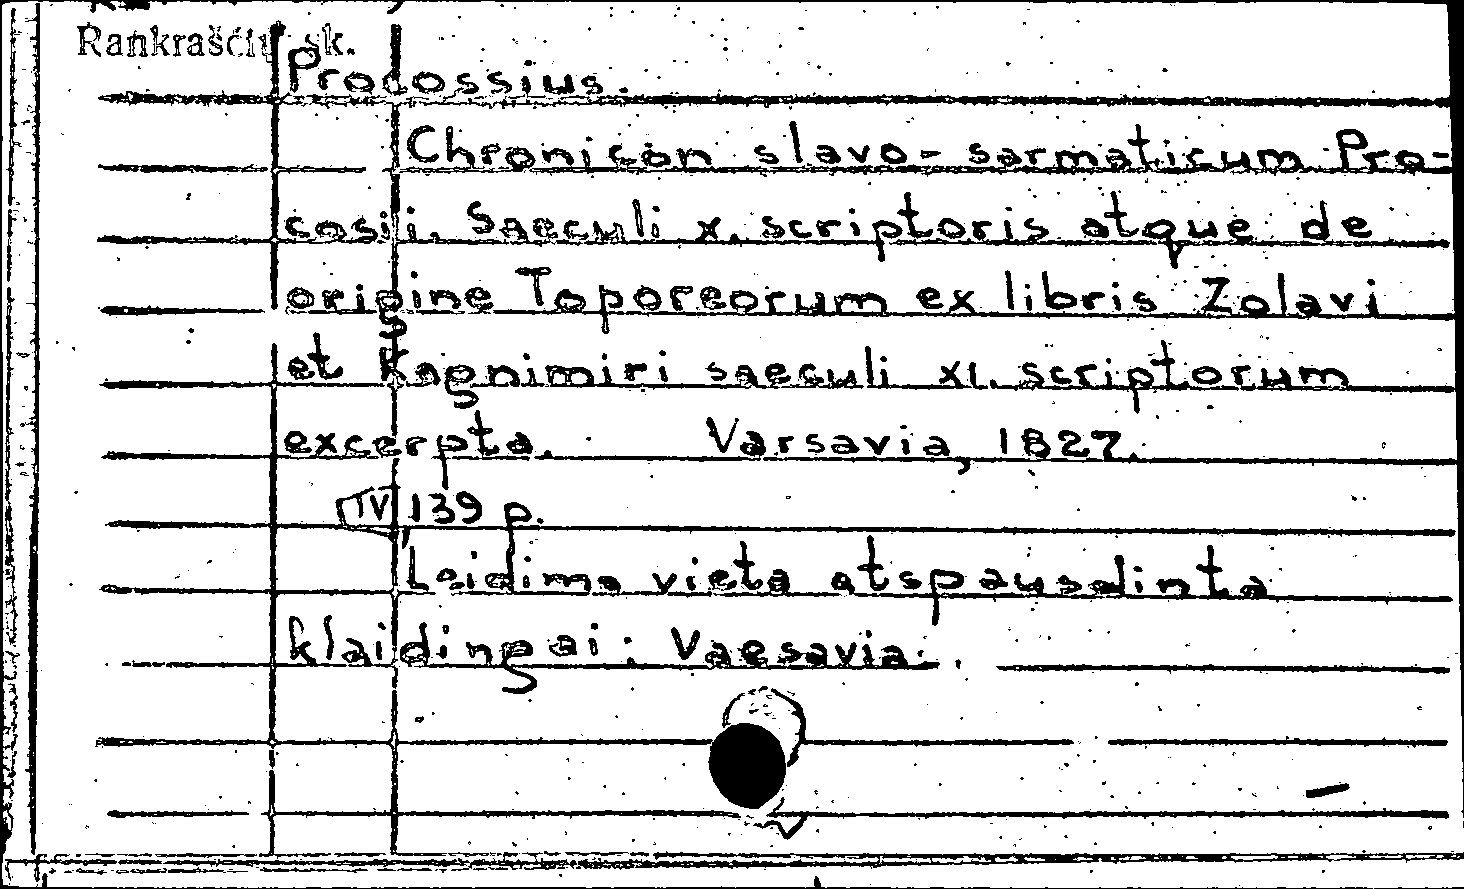 Rankraščių sk.
Procossius.
Chronicon slavo-sarmaticum Pro-
cosii. Saeculi x. scriptoris atque de
origine Toporeorum ex libris Zolavi
et Kagnimiri saeculi XI. scriptorum
excerpta. Varsavia, 1827.
IV, 139 p.
Leidimo vieta atspausdinta
klaidingai: Vaesavia.